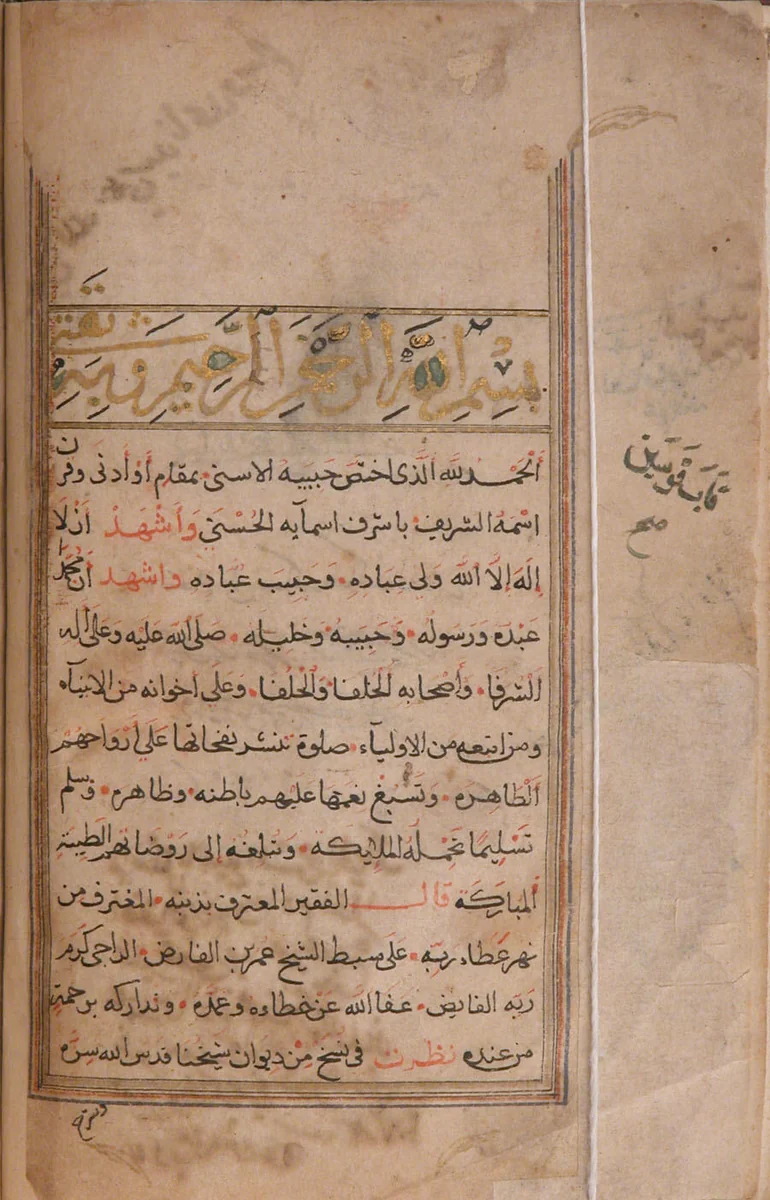 بسم الله الرحمن الرحيم وبه نقتي
اَلحمد لله الذى اختصّ حَبيبه الاسنى بمقام أو أدنى وقرن
اسمه الشريف باشرف اسمآيه الحُسْنى وَأشْهَدُ أنْ لَا
إلَه إلّا الله ولى عباده وَحَبِيب عُباده واشهد أنّ محمّدًا
عبده وَرَسُوله وَحَبيبه وخليله صَلى الله عليه وعلى آله
الشرفا وأصحابه الحلفا والخلفا وعَلى أخوانه من الانبيآء
ومن اتبعه من الاوليآء صلوة تنشر نفحاتها عَلى أرْوَاحهم
الطّاهره وتسبغ نعمتها عليهم باطنه وظاهره وسلم
تسليما تحمله الملايكه وتبلغه إلى رَوضاتهم الطيبة
المبَاركة قال الفقير المعترف بذنبه المغترف من
نهر عَطاء ربّه على سبط الشيخ عمر بن الفارض الراجى كرم
رَبه الفايض عفا الله عَن خطاوه وعمده وتداركه برحمة
من عنده نظرت فى نسخ من ديوان شيخنا قدس الله سره
قاب قوسين
صح